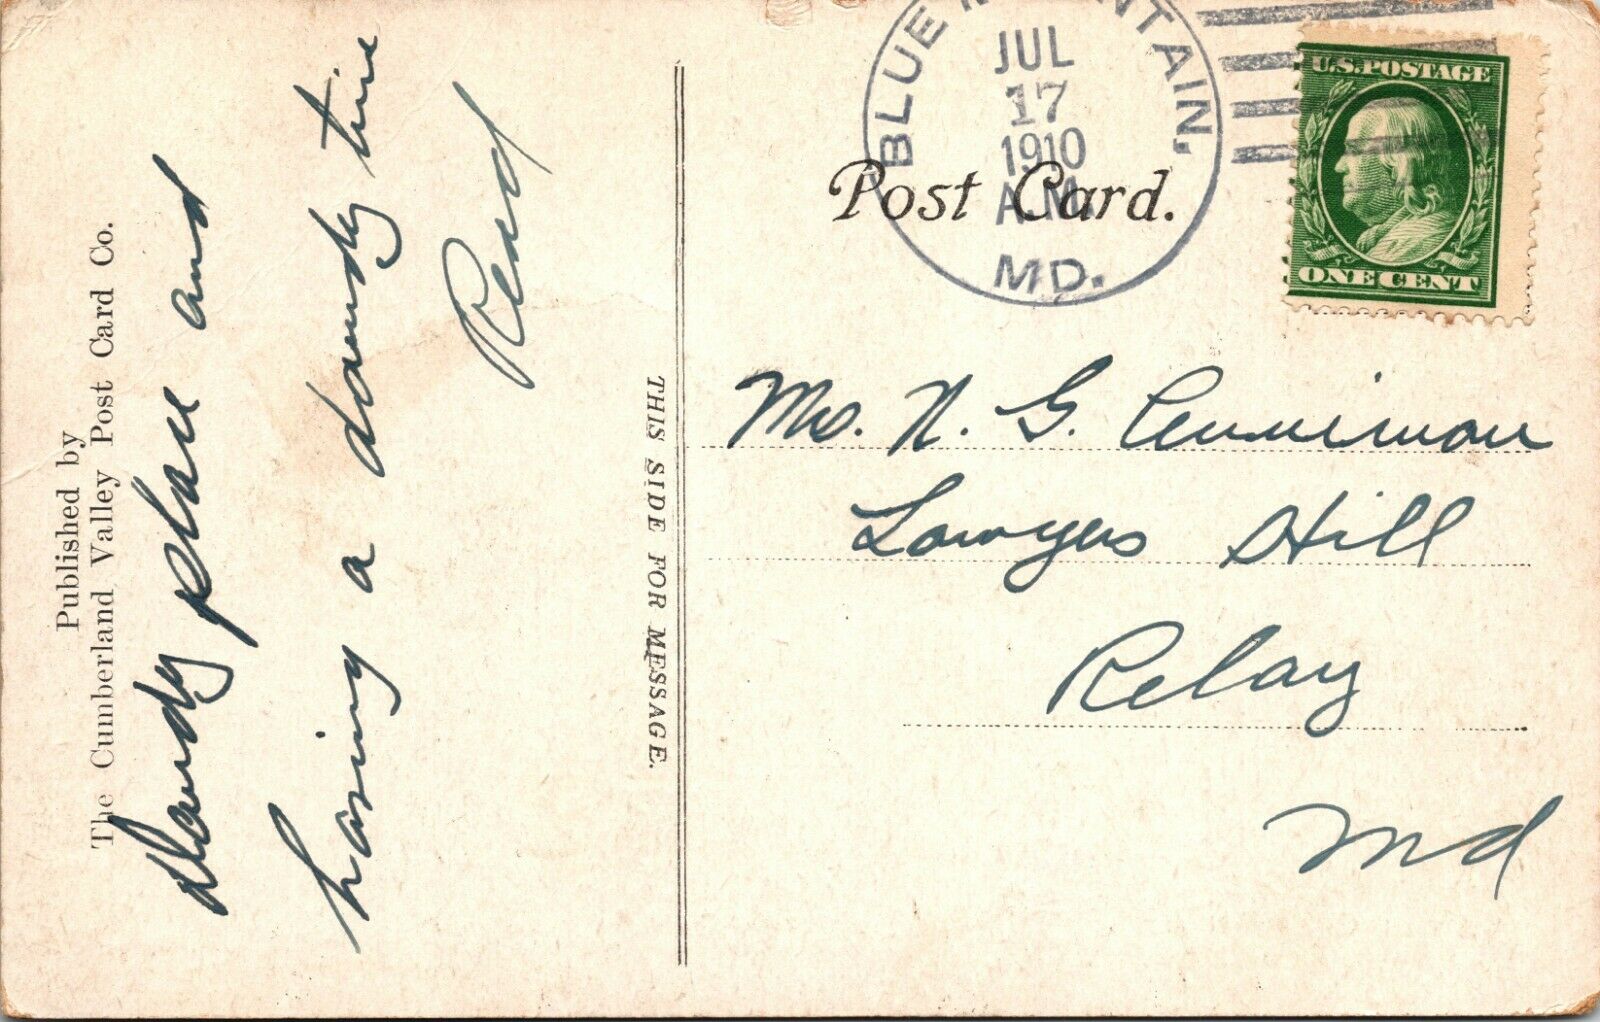 Published by
The Cumberland Valley Post Card Co.
Dandy place and
having a dandy time
THIS SIDE FOR MESSAGE.
BLUE MOUNTAIN,
JUL
17
1910
A.M.
MD.
Post Card.
U.S. POSTAGE
ONE CENT
N. G.
Lawyers Hill
Relay
Md